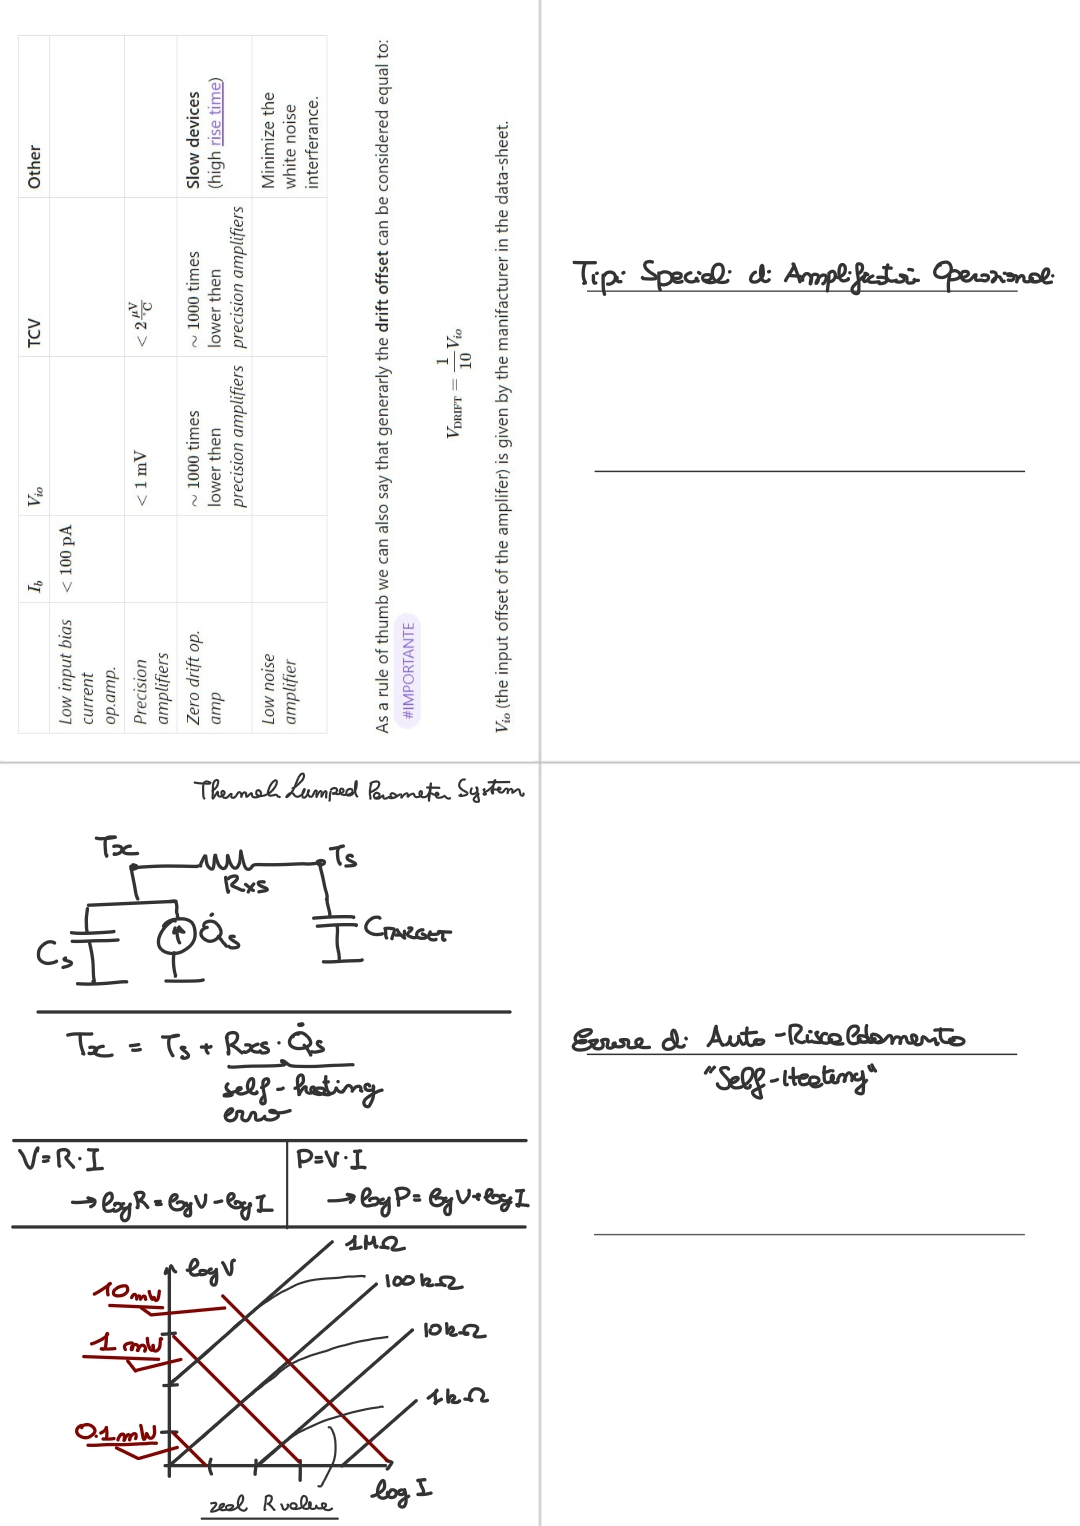 I_b V_io TCV Other
Low input bias current op.amp. < 100 pA
Precision amplifiers < 1 mV < 2 μV/°C
Zero drift op. amp ~ 1000 times lower then precision amplifiers ~ 1000 times lower then precision amplifiers Slow devices (high rise time)
Low noise amplifier Minimize the white noise interferance.
As a rule of thumb we can also say that generarly the drift offset can be considered equal to:
#IMPORTANTE
V_DRIFT = 1/10 V_io
V_io (the input offset of the amplifer) is given by the manifacturer in the data-sheet.
Tipi Speciali di Amplificatori Operazionali
Thermal Lumped Parameter System
Tx Ts
Rxs
Cs Q̇s CTARGET
Tx = Ts + Rxs · Q̇s
self-heating
error
V=R·I P=V·I
→ log R = log V - log I → log P = log V + log I
log V 1MΩ
10mW 100kΩ
1mW 10kΩ
1kΩ
0.1mW
log I
real R value
Errore di Auto-Riscaldamento
"Self-Heating"